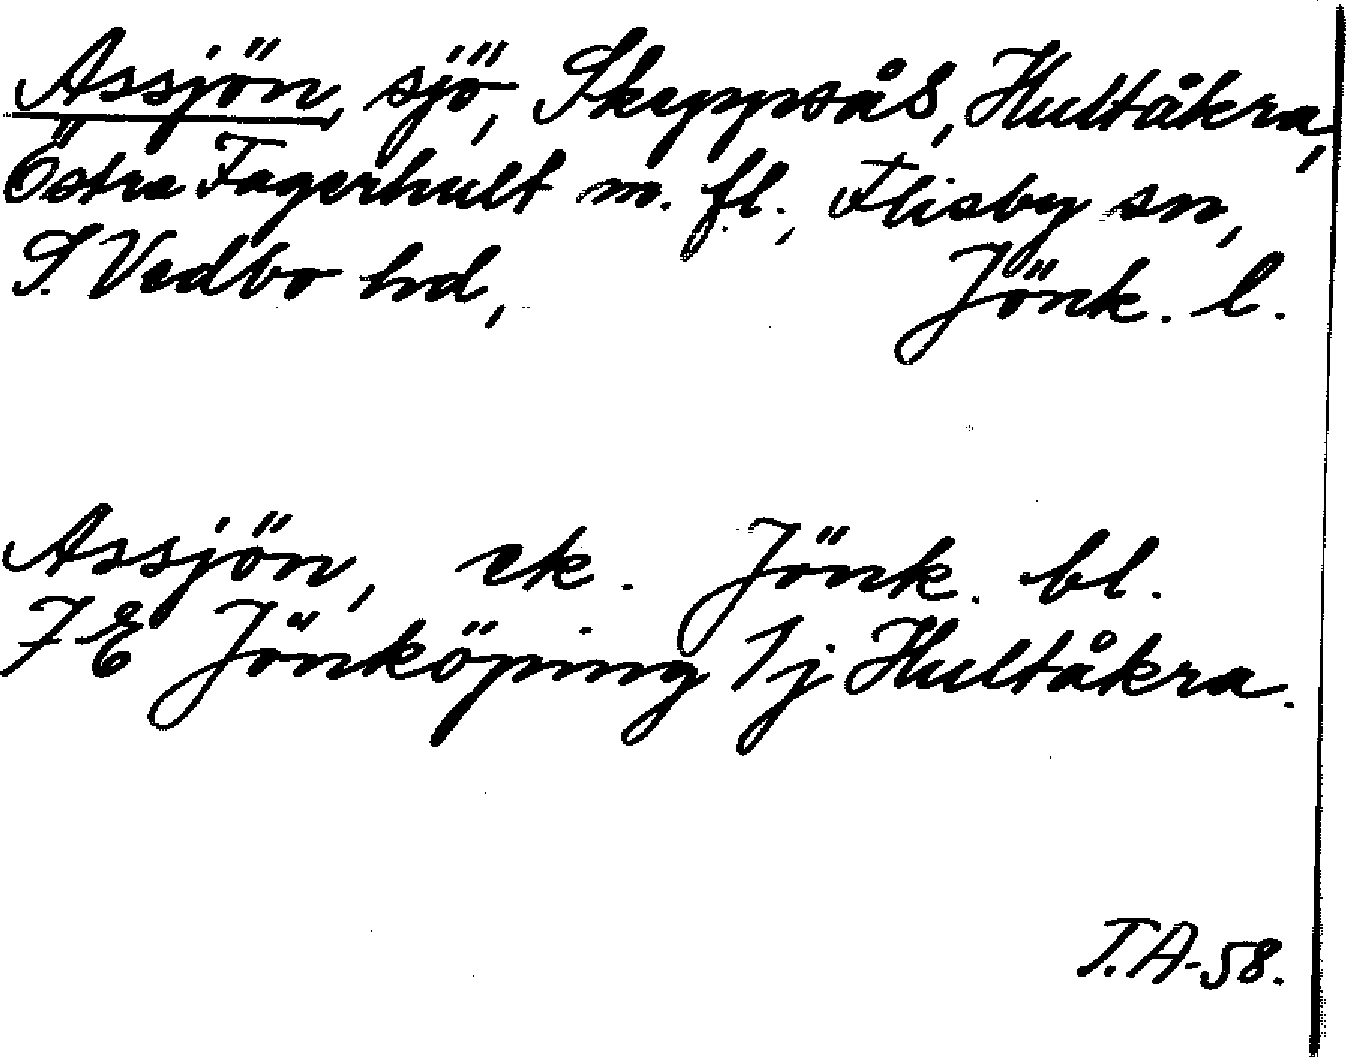 Assjön, sjö, Skeppsås, Hultåkra,
Östra Fagerhult m. fl., Flisby sn,
S. Vedbo hd, Jönk. l.
Assjön, ek. Jönk. bl.
7 E Jönköping 1j Hultåkra.
T.A-58.